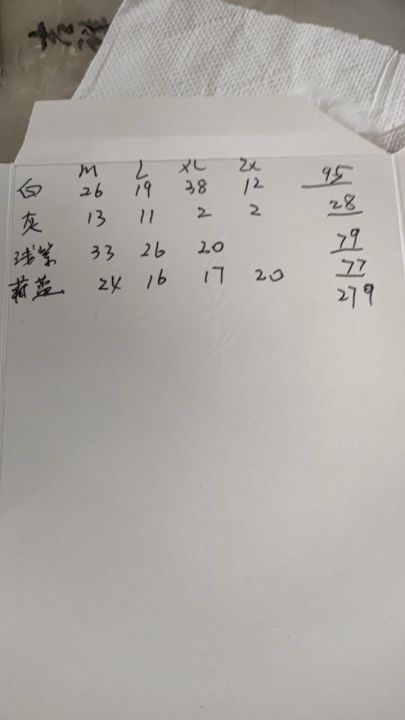 M L XL 2X
白 26 19 38 12 95
灰 13 11 2 2 28
浅紫 33 26 20 79
藏蓝 24 16 17 20 77
279